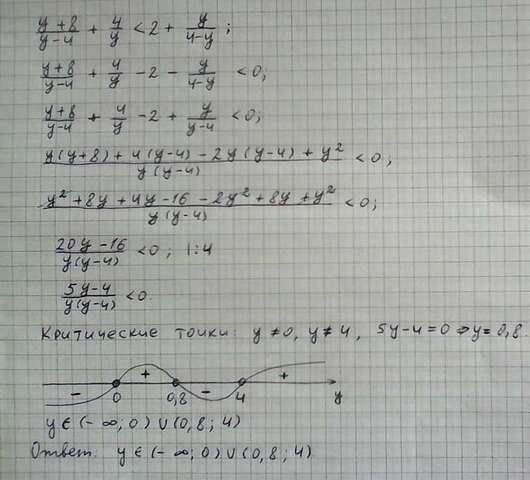 (y+8)/(y-4) + 4/y < 2 + y/(4-y) ;
(y+8)/(y-4) + 4/y - 2 - y/(4-y) < 0;
(y+8)/(y-4) + 4/y - 2 + y/(y-4) < 0;
(y(y+8) + 4(y-4) - 2y(y-4) + y²)/(y(y-4)) < 0;
(y² + 8y + 4y - 16 - 2y² + 8y + y²)/(y(y-4)) < 0;
(20y - 16)/(y(y-4)) < 0 ; 1:4
(5y-4)/(y(y-4)) < 0.
Критические точки: y ≠ 0, y ≠ 4, 5y-4=0 ⇒ y = 0,8.
- + - +
0 0,8 4 y
y ∈ (-∞; 0) ∪ (0,8; 4)
Ответ: y ∈ (-∞; 0) ∪ (0,8; 4)